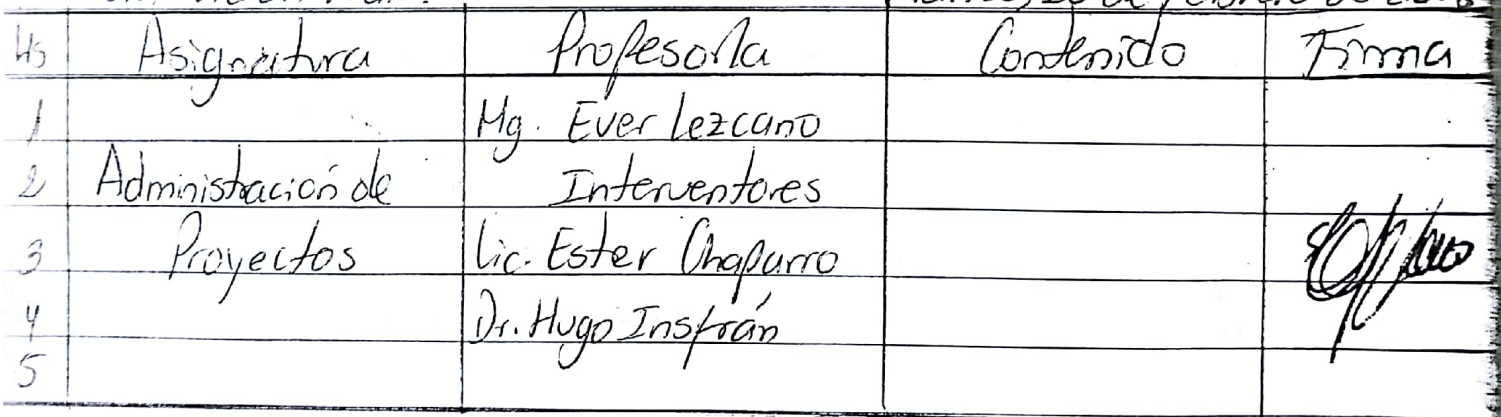 Hs Asignatura Profesor/a Contenido Firma
1 Mg. Ever Lezcano
2 Administración de Interventores
3 Proyectos Lic. Ester Chaparro
4 Dr. Hugo Insfrán
5